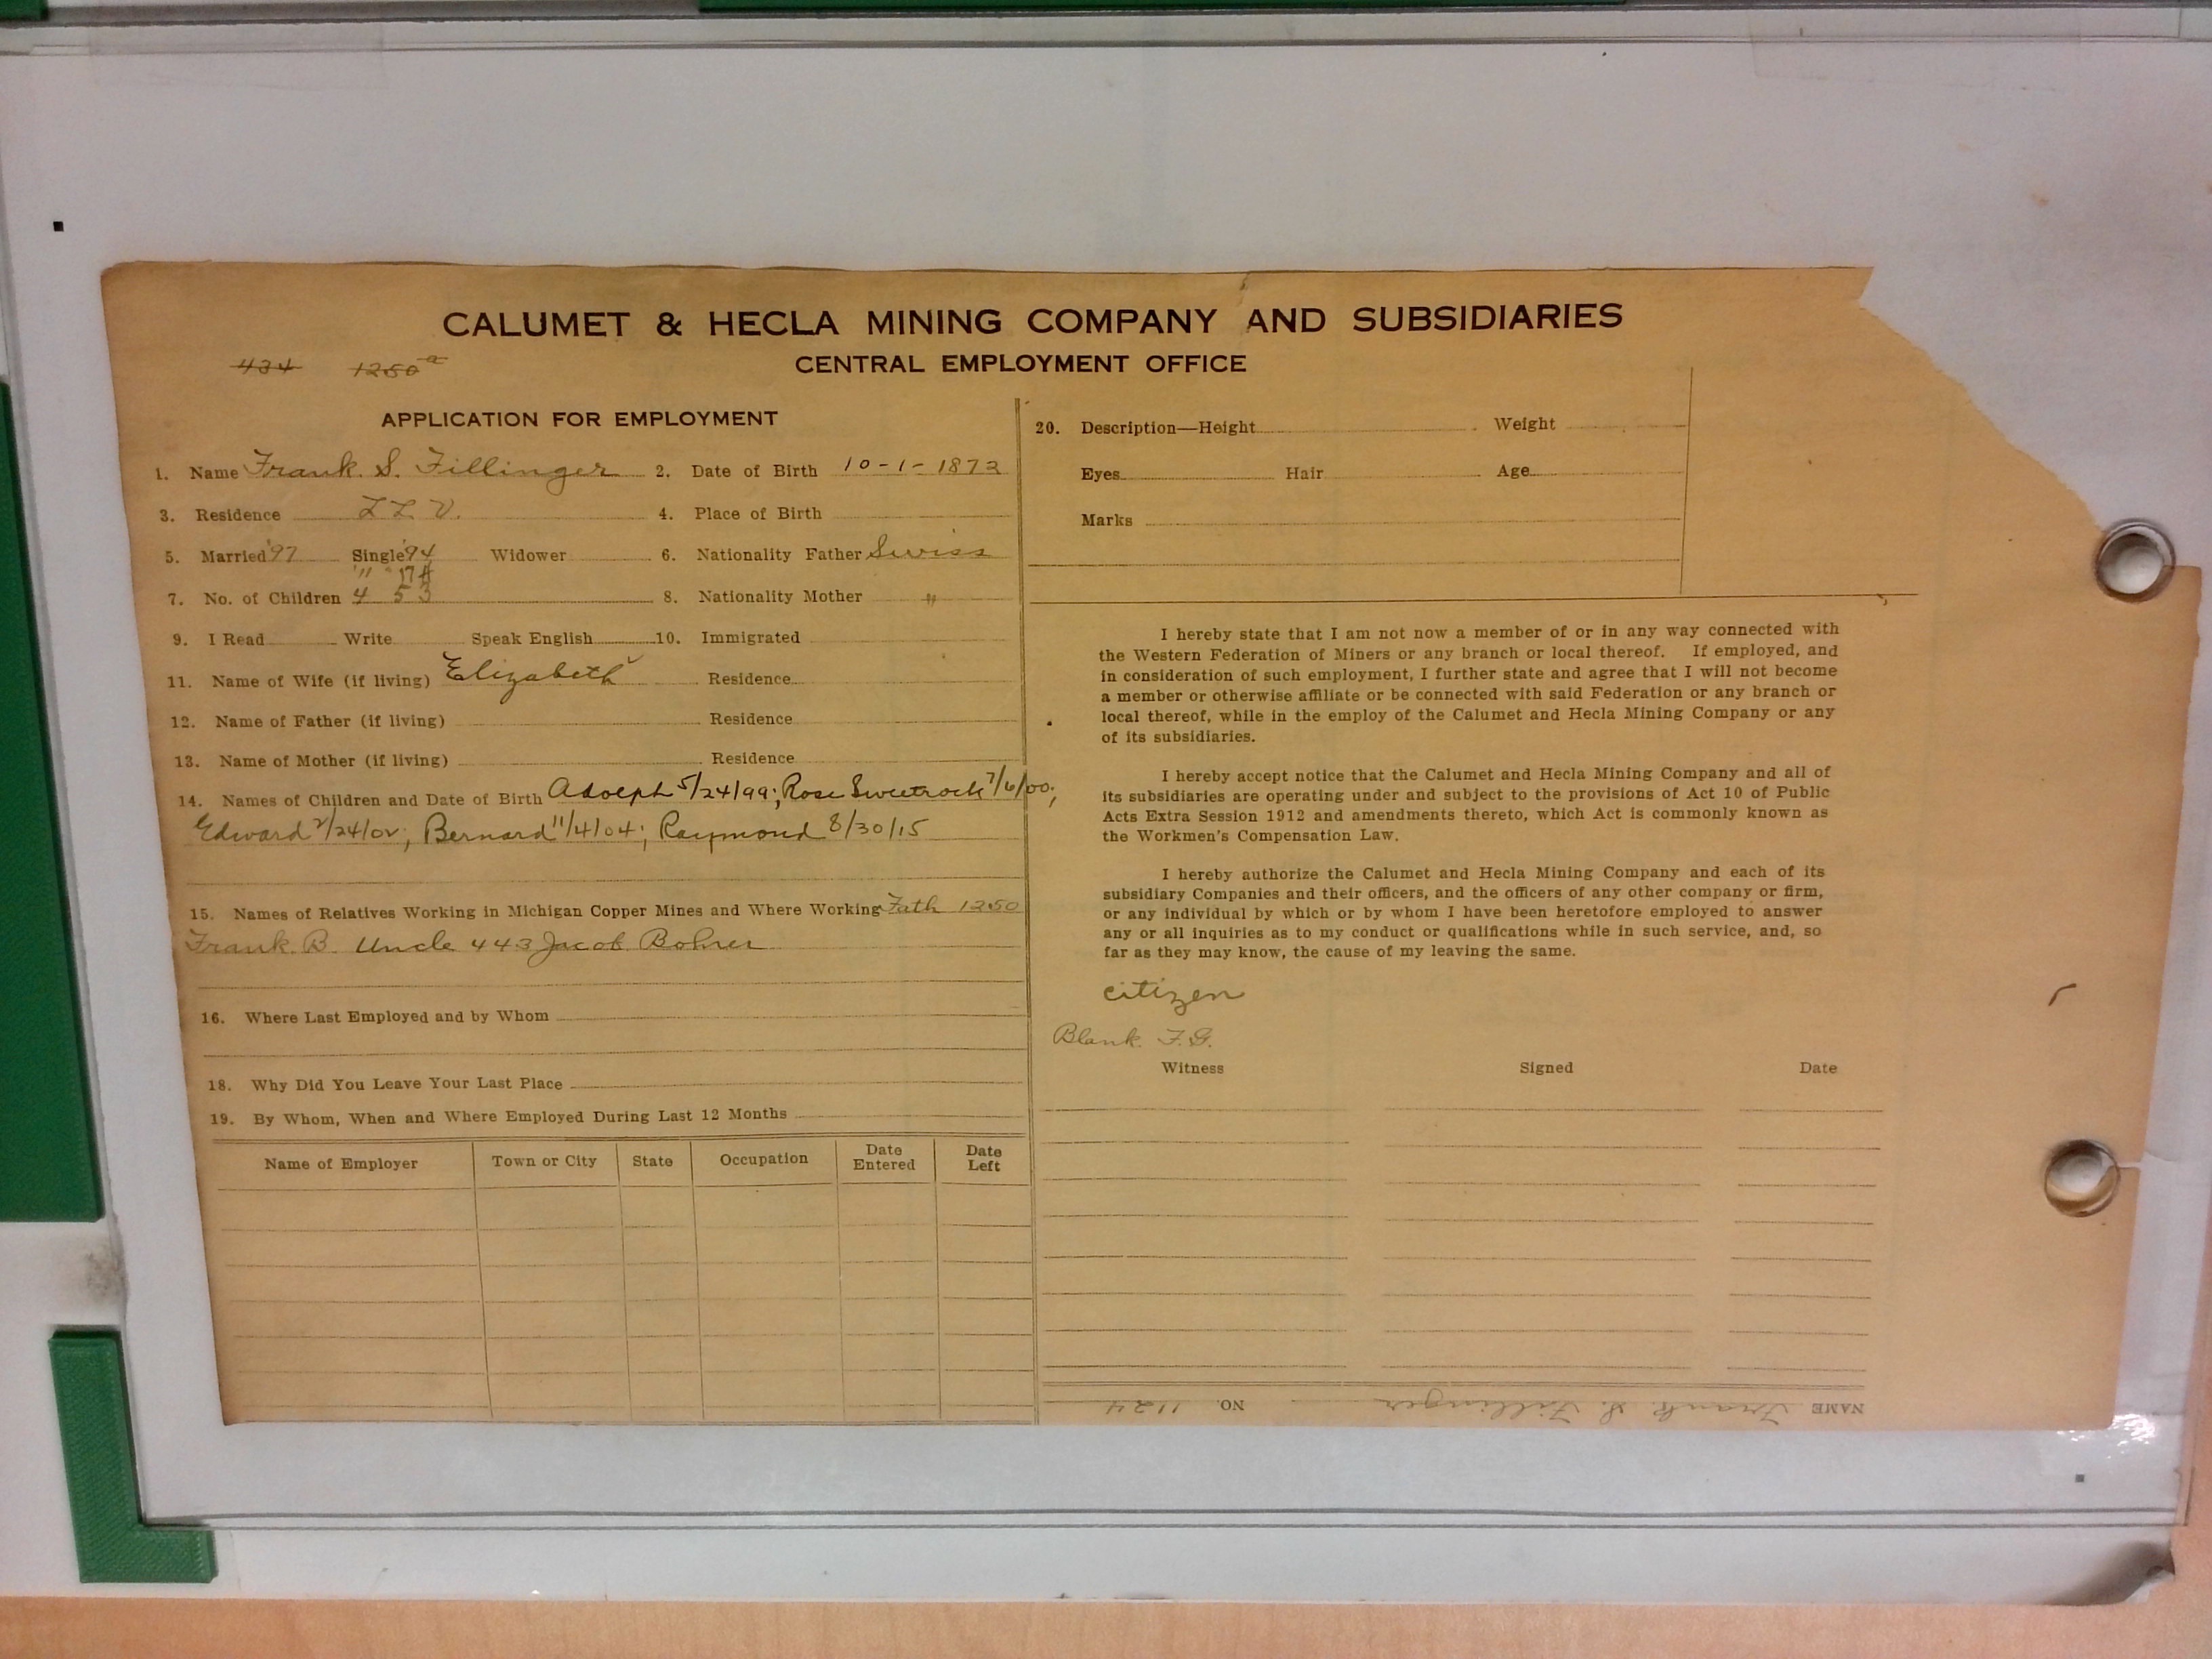 CALUMET & HECLA MINING COMPANY AND SUBSIDIARIES
434 1250
CENTRAL EMPLOYMENT OFFICE
APPLICATION FOR EMPLOYMENT
1. Name Frank. S. Fillinger 2. Date of Birth 10-1-1872
3. Residence L L V. 4. Place of Birth
5. Married '97 Single '94 Widower 6. Nationality Father Swiss
'11 17
7. No. of Children 4 5 3 8. Nationality Mother "
9. I Read Write Speak English 10. Immigrated
11. Name of Wife (if living) Elizabeth Residence
12. Name of Father (if living) Residence
13. Name of Mother (if living) Residence
14. Names of Children and Date of Birth Adolph 5/24/99; Rose Sweetrock 7/6/00;
Edward 2/24/02; Bernard 11/4/04; Raymond 8/30/15
15. Names of Relatives Working in Michigan Copper Mines and Where Working Fath 1250
Frank. B. Uncle 443 Jacob Bohrer
16. Where Last Employed and by Whom
18. Why Did You Leave Your Last Place
19. By Whom, When and Where Employed During Last 12 Months
Name of Employer Town or City State Occupation Date Entered Date Left
20. Description—Height Weight
Eyes Hair Age
Marks
I hereby state that I am not now a member of or in any way connected with
the Western Federation of Miners or any branch or local thereof. If employed, and
in consideration of such employment, I further state and agree that I will not become
a member or otherwise affiliate or be connected with said Federation or any branch or
local thereof, while in the employ of the Calumet and Hecla Mining Company or any
of its subsidiaries.
I hereby accept notice that the Calumet and Hecla Mining Company and all of
its subsidiaries are operating under and subject to the provisions of Act 10 of Public
Acts Extra Session 1912 and amendments thereto, which Act is commonly known as
the Workmen's Compensation Law.
I hereby authorize the Calumet and Hecla Mining Company and each of its
subsidiary Companies and their officers, and the officers of any other company or firm,
or any individual by which or by whom I have been heretofore employed to answer
any or all inquiries as to my conduct or qualifications while in such service, and, so
far as they may know, the cause of my leaving the same.
citizen
Blank. F.G.
Witness Signed Date
NAME Frank. S. Fillinger NO. 1124